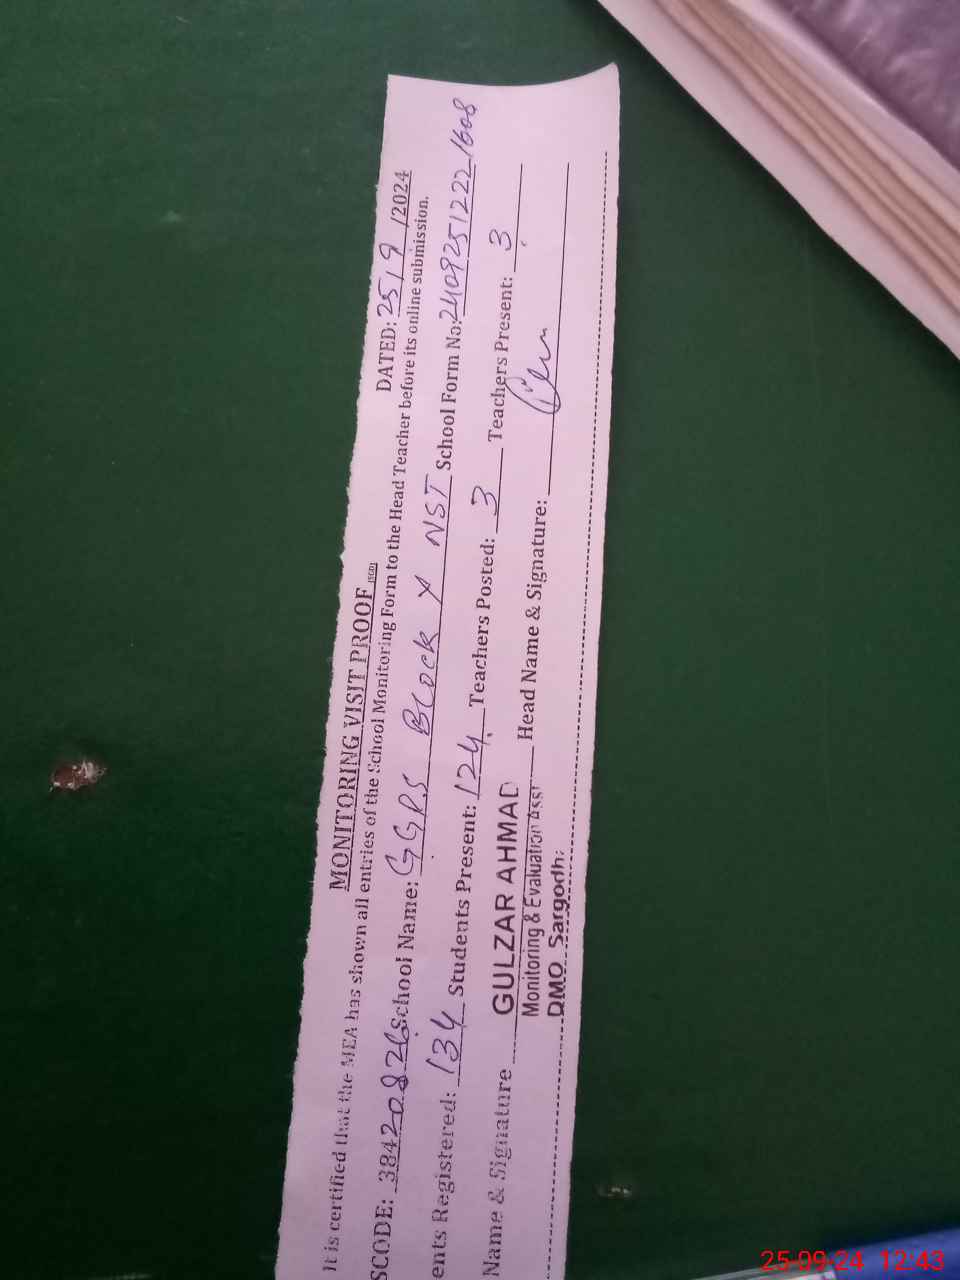 MONITORING VISIT PROOF (SGD)
DATED: 25/9/2024
It is certified that the MEA has shown all entries of the School Monitoring Form to the Head Teacher before its online submission.
SCODE: 38420826 School Name: GGPS Block X NST School Form No: 24092512221608
ents Registered: 134 Students Present: 124 Teachers Posted: 3 Teachers Present: 3
Name & Signature GULZAR AHMAD Head Name & Signature:
Monitoring & Evaluation Asst
DMO Sargodh
25-09-24 12:43